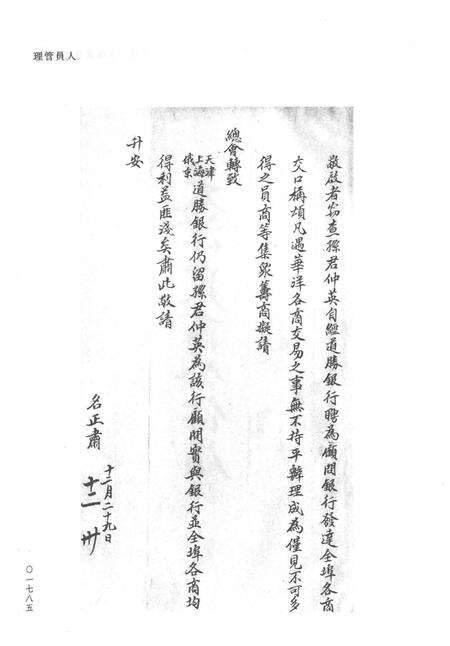 人員管理
敬啟者竊查孫君仲英自經道勝銀行聘為顧問銀行發達全埠各商
交口稱頌凡遇華洋各商交易之事無不持平辦理成為僅見不可多
得之員商等集衆籌商擬請
總會轉致
天津
上海
俄京
道勝銀行仍留孫君仲英為該行顧問實與銀行並全埠各商均
得利益匪淺矣肅此敬請
升安
名正肅
十二月二十九日
十二 卅
〇一七八五